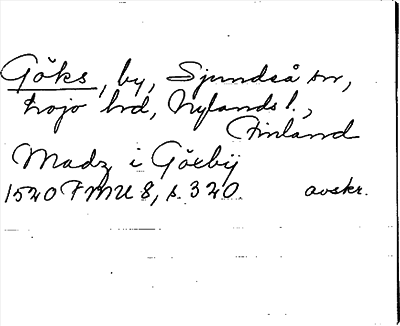 Göks, by, Sjundeå sn,
Lojo hd, Nylands l.,
Finland
Madz i Göxby
1520 FMU 8, s. 320. avskr.